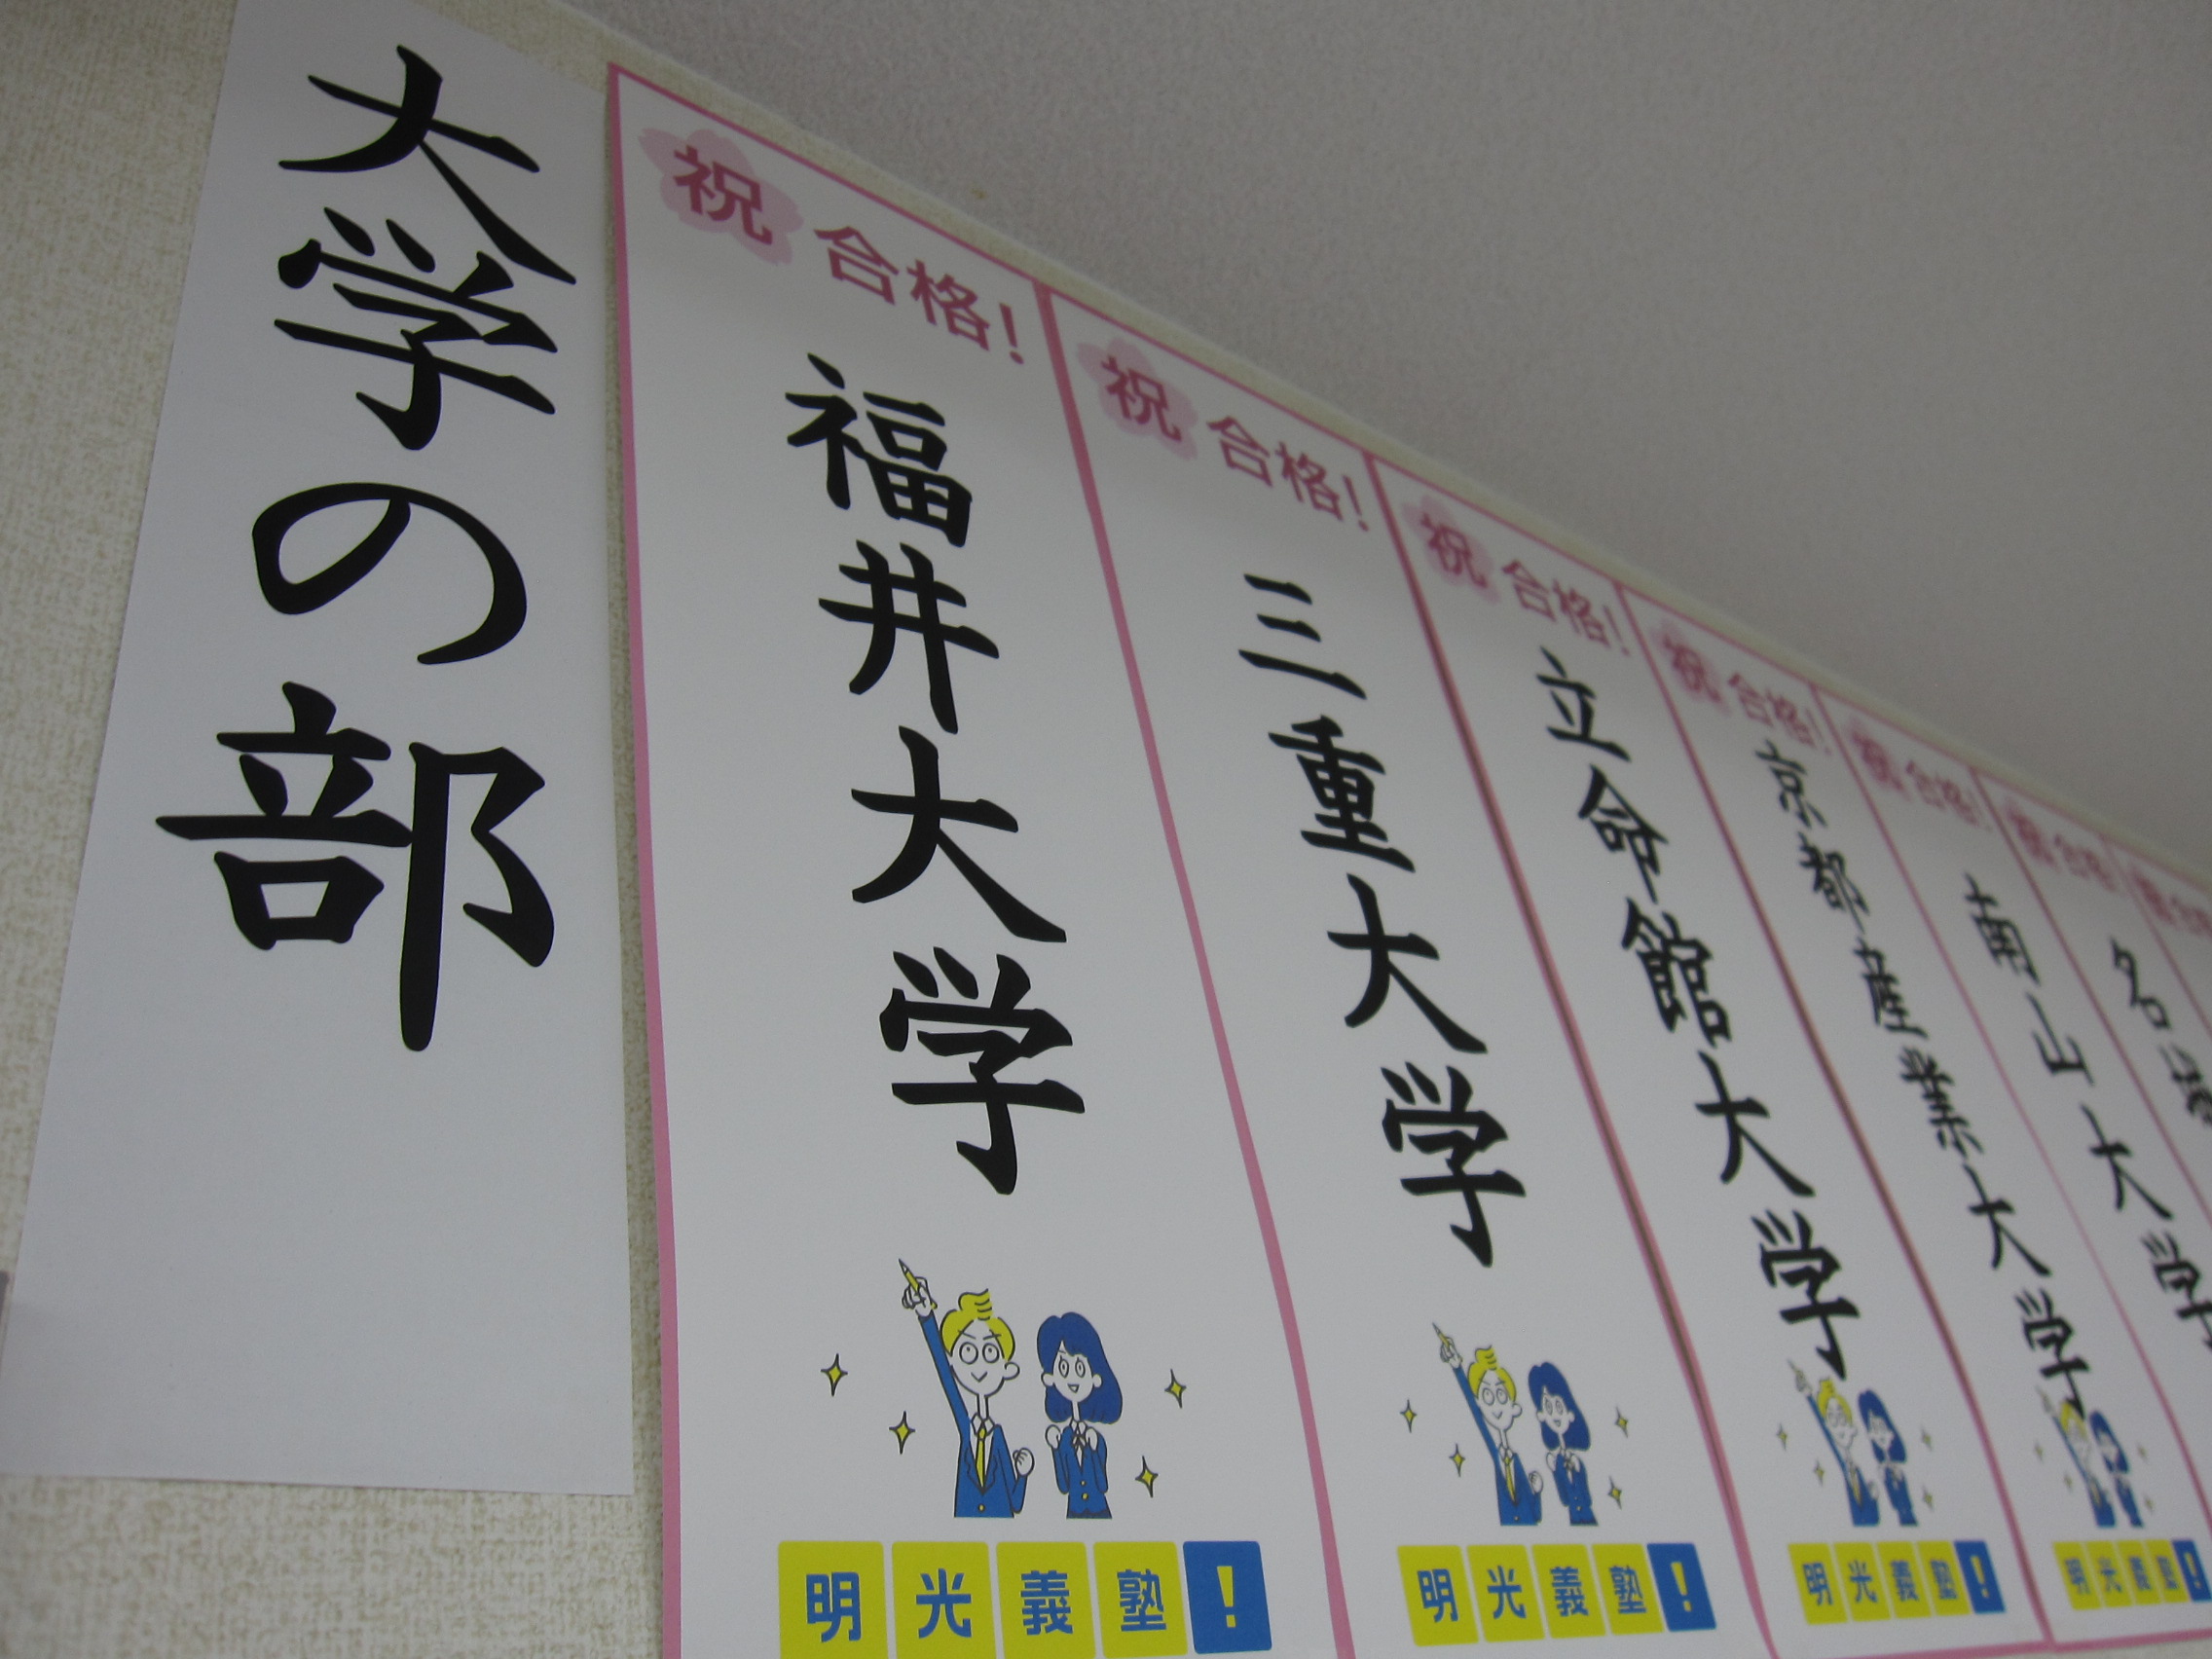 大学の部
祝 合格!
福井大学
明光義塾!
祝 合格!
三重大学
明光義塾!
祝 合格!
立命館大学
明光義塾!
祝 合格!
京都産業大学
明光義塾!
祝 合格!
南山大学
祝 合格!
名城